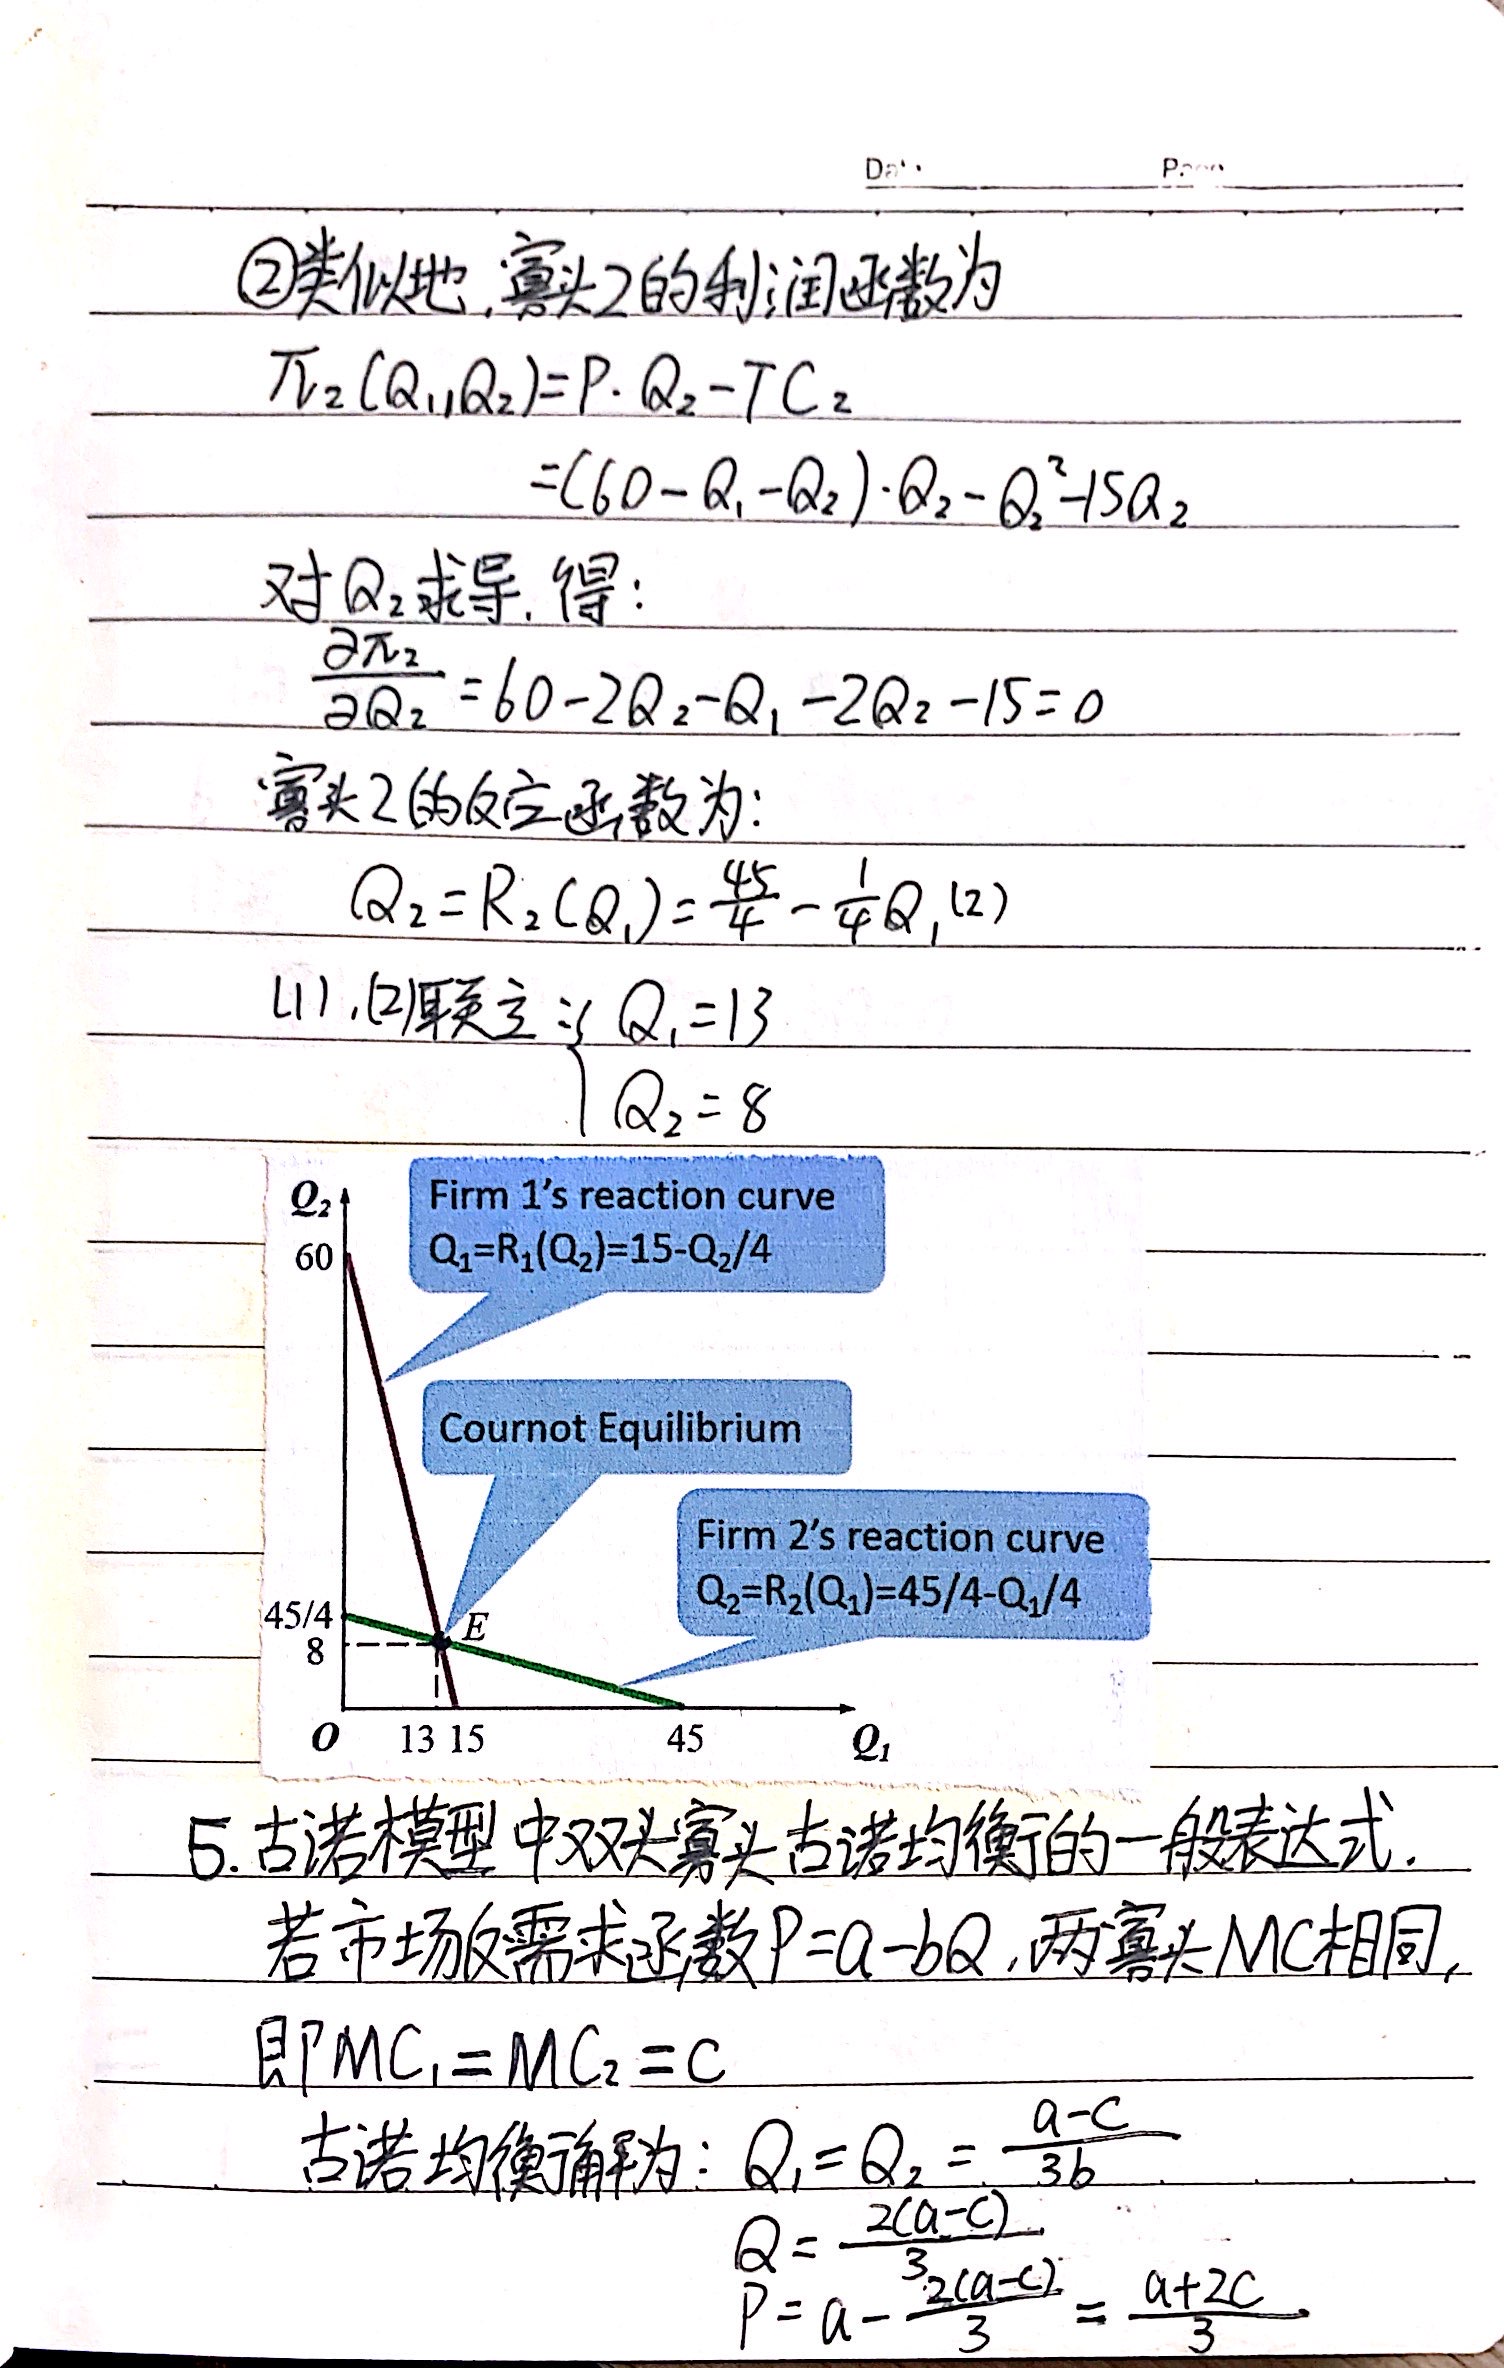 ②类似地,寡头2的利润函数为
π₂(Q₁,Q₂)=P·Q₂-TC₂
=(60-Q₁-Q₂)·Q₂-Q₂²-15Q₂
对Q₂求导,得:
∂π₂/∂Q₂=60-2Q₂-Q₁-2Q₂-15=0
寡头2的反应函数为:
Q₂=R₂(Q₁)=45/4-1/4Q₁(2)
(1).(2)联立:{Q₁=13
Q₂=8
Q₂
60
Firm 1's reaction curve
Q₁=R₁(Q₂)=15-Q₂/4
Cournot Equilibrium
Firm 2's reaction curve
Q₂=R₂(Q₁)=45/4-Q₁/4
45/4
E
8
O 13 15 45 Q₁
5.古诺模型中双头寡头古诺均衡的一般表达式.
若市场反需求函数P=a-bQ,两寡头MC相同,
即MC₁=MC₂=C
古诺均衡解为:Q₁=Q₂=(a-c)/3b
Q=2(a-c)/3
P=a-2(a-c)/3=(a+2c)/3